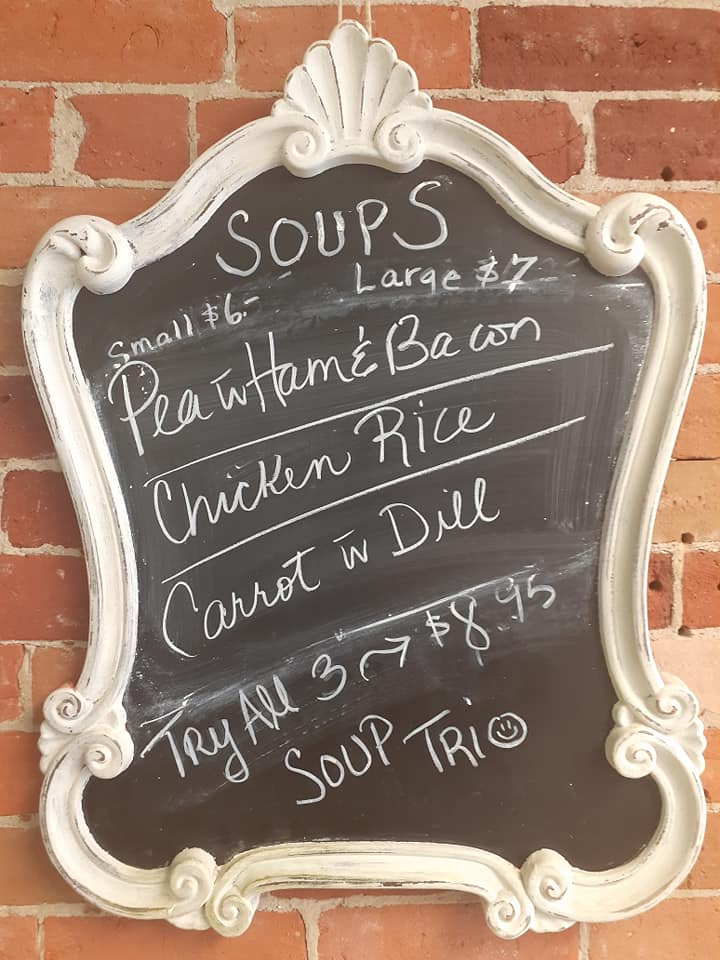 SOUPS
Small $6.- Large $7-
Pea w̄ Ham & Bacon
Chicken Rice
Carrot w̄ Dill
Try All 3 → $8.95
SOUP TRIO